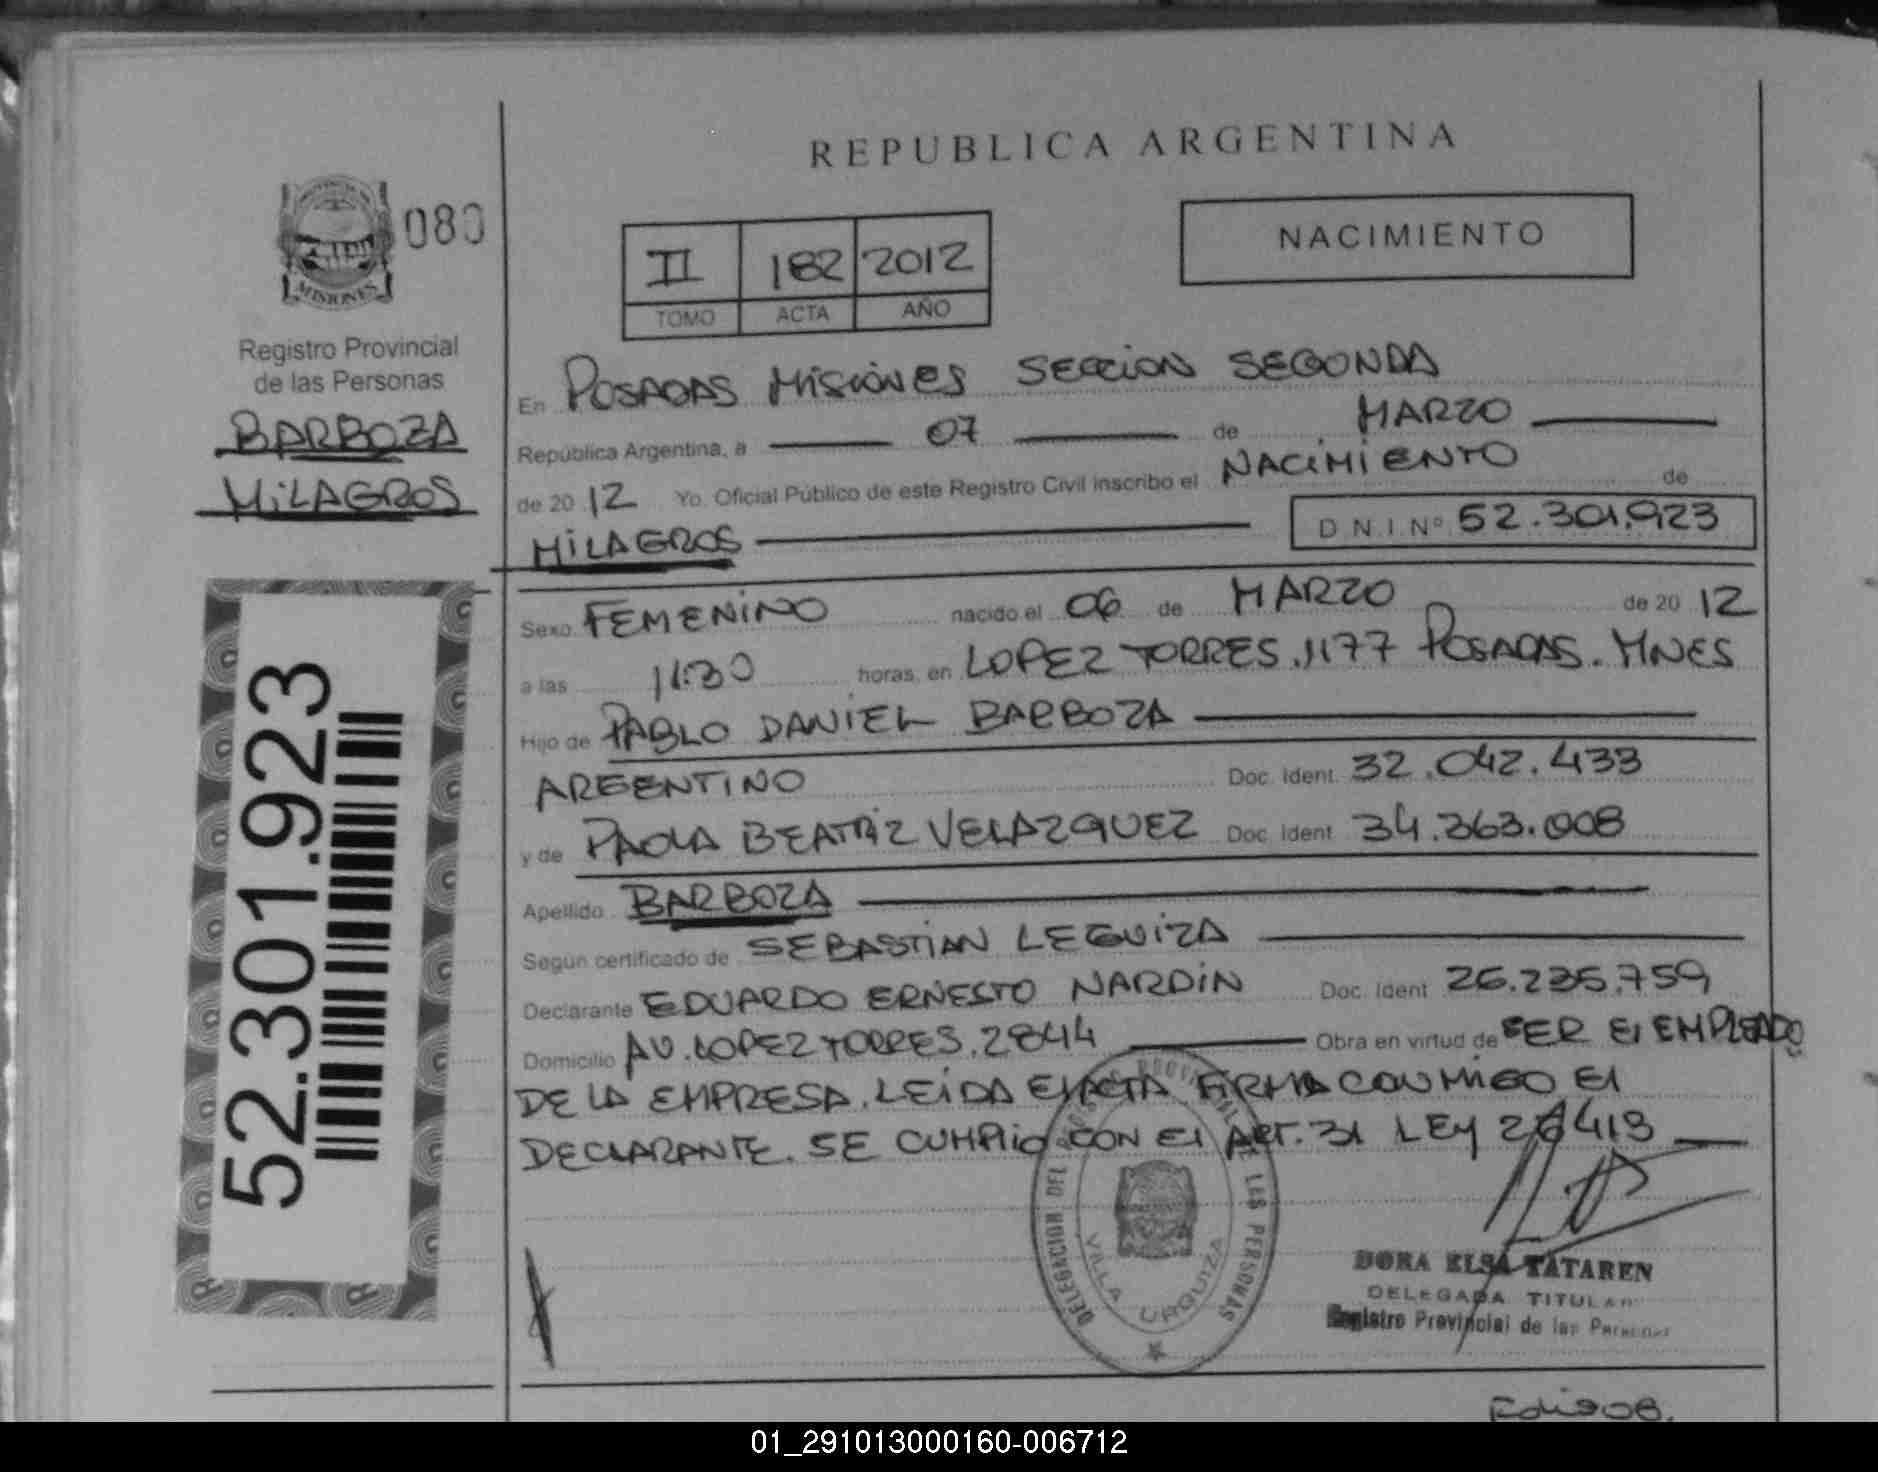 REPUBLICA ARGENTINA
MISIONES
080
Registro Provincial
de las Personas
BARBOZA
MILAGROS
52.301.923
II 182 2012
TOMO ACTA AÑO
NACIMIENTO
En POSADAS MISIONES SECCION SEGONDA
República Argentina, a 07 de MARZO
de 20 12 Yo. Oficial Público de este Registro Civil inscribo el NACIMIENTO de
MILAGROS D.N.I. Nº 52.301.923
Sexo FEMENINO nacido el 06 de MARZO de 20 12
a las 11:30 horas, en LOPEZ TORRES.1177 POSADAS. MNES
Hijo de PABLO DANIEL BARBOZA
ARGENTINO Doc. Ident. 32.042.433
y de PAOLA BEATRIZ VELAZQUEZ Doc. Ident. 34.363.008
Apellido BARBOZA
Segun certificado de SEBASTIAN LEGUIZA
Declarante EDUARDO ERNESTO NARDIN Doc. Ident 26.235.759
Domicilio AV. LOPEZ TORRES.2844 Obra en virtud de SER El EMPLEADO
DE LA EMPRESA. LEIDA El ACTA FIRMA CONMIGO El
DECLARANTE. SE CUMPLIO CON El ART. 31 LEY 26413
DELEGACION DEL REGISTRO PROVINCIAL DE LES PERSONAS
VILLA URQUIZA
DORA ELSA TATAREN
DELEGADA TITULAR
Registro Provincial de las Personas
01_291013000160-006712